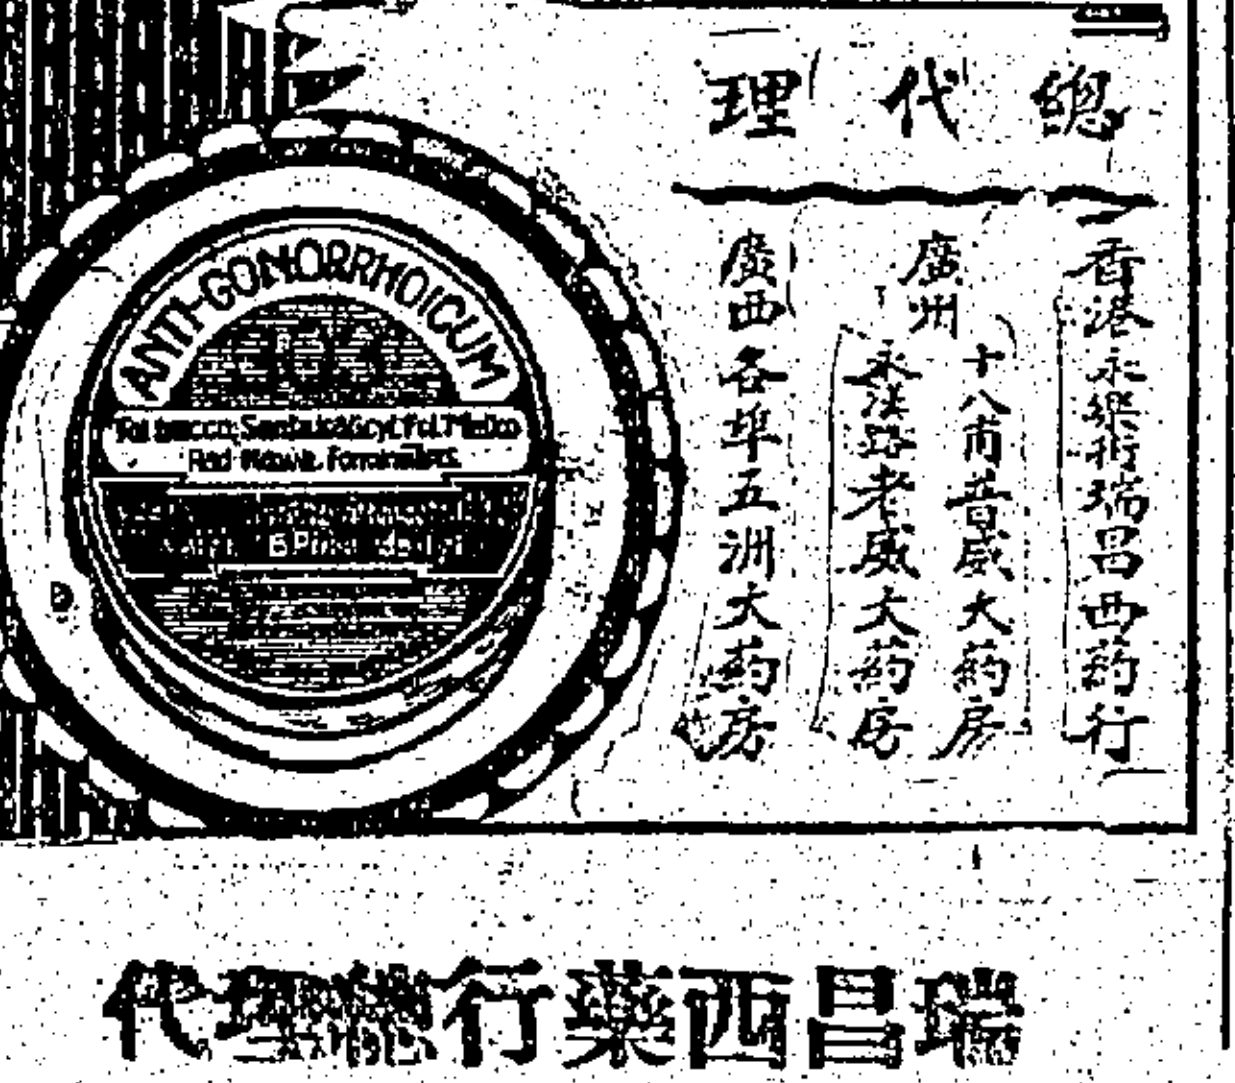 總代理
香港永樂街瑞昌西葯行
廣州
十八甫普威大葯房
永漢路老威大葯房
廣西各埠五洲大葯房
ANTI-GONORRHOICUM
瑞昌西藥行總理代